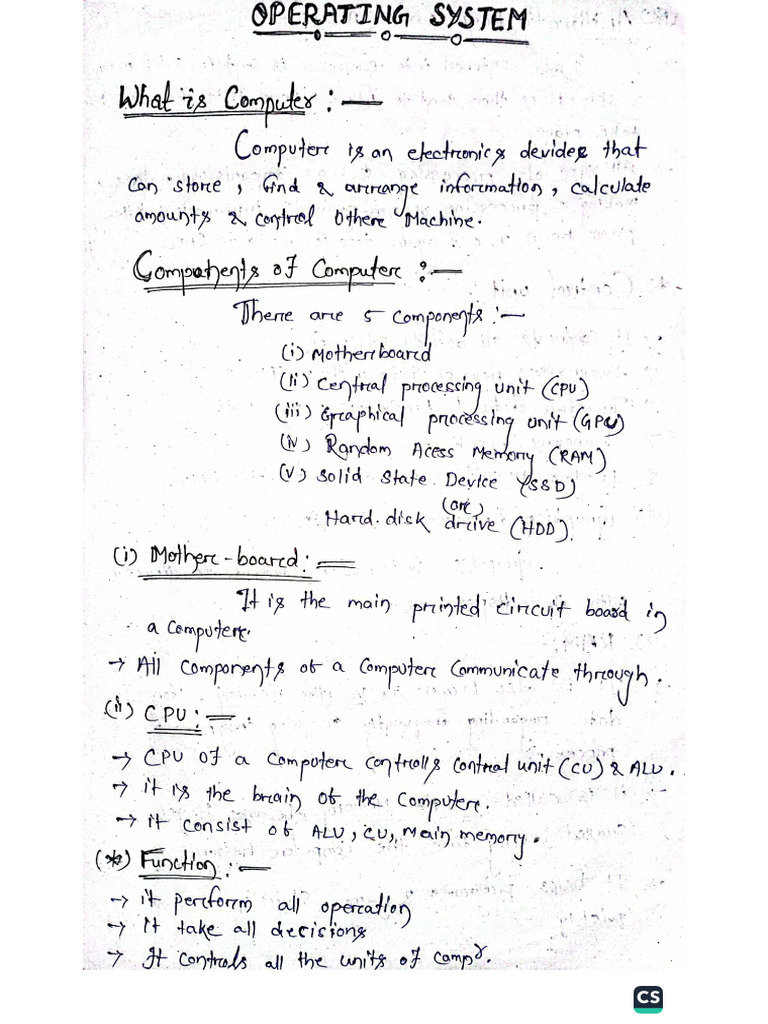 OPERATING SYSTEM
What is Computer :—
Computer is an electronics devides that
can store, find & arrange information, calculate
amounts & control Other Machine.
Components of Computer :—
There are 5 components :—
(i) Motherboard
(ii) Central processing unit (CPU)
(iii) Graphical processing unit (GPU)
(iv) Random Acess Memory (RAM)
(v) Solid State Device (SSD)
(or)
Hard.disk drive (HDD).
(i) Mother-board :—
It is the main printed circuit board in
a computer.
→ All components of a computer communicate through.
(ii) CPU :—
→ CPU of a computer controlls control unit (CU) & ALU.
→ it is the brain of the computer.
→ it consist of ALU, CU, Main memory.
(*) Function :—
→ it perform all operation
→ It take all decisions
→ It controls all the units of compr.
CS